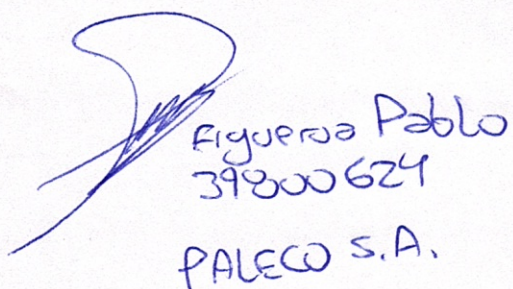 Figueroa Pablo
39800624
PALECO S.A.